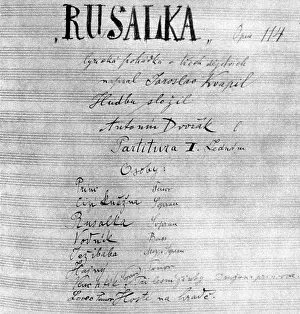 „RUSALKA„ Opus 114
lyrická pohádka o třech dějstvích
napsal Jaroslav Kvapil
Hudbu složil
Antonín Dvořák
Partitura I. Jednání
Osoby:
Princ Tenor
Cizí kněžna Sopran
Rusalka Sopran
Vodník Bass
Ježibaba Mezzo Sopran
Hajný Tenor
Kuchtík Sopran
Lovec Tenor Hosté na hradě.